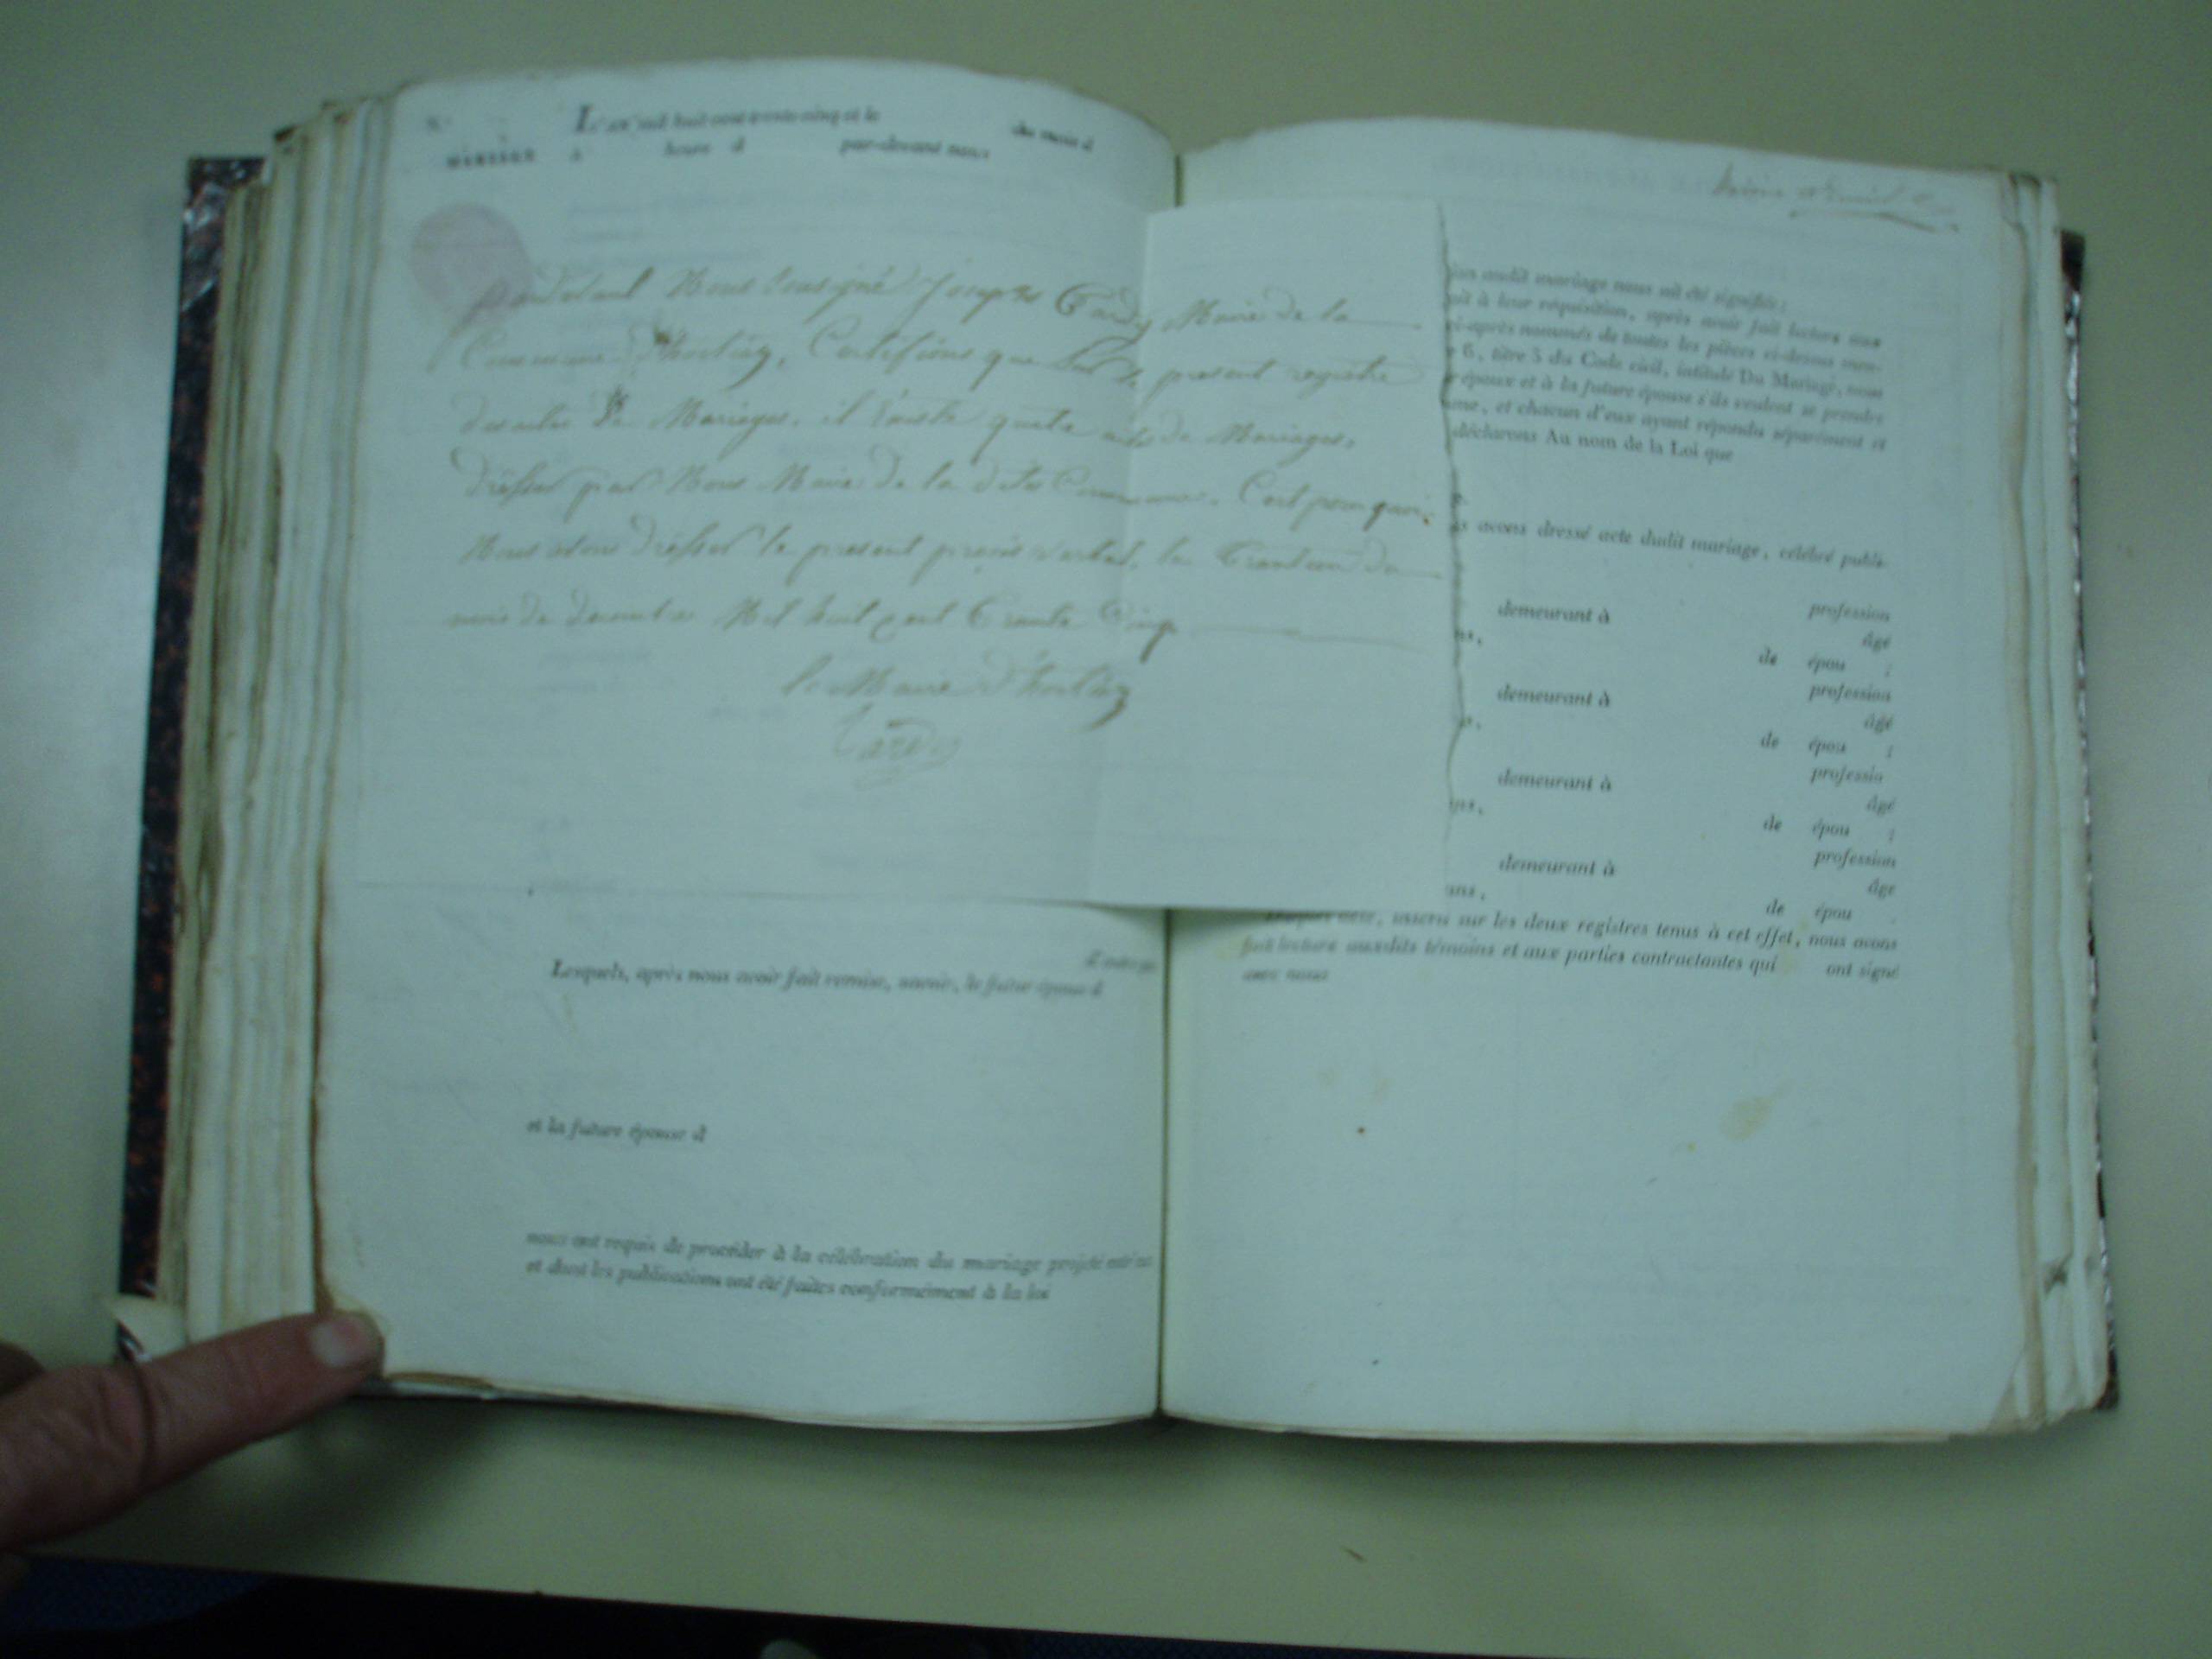 L'an mil huit cent trente-cinq et le du mois d
MARIAGE à heure d par-devant nous
pardevant Nous Soussigné Joseph Tardy Maire de la
Commune d'hostiaz, Certifions que Sur le present registre
des actes de Mariages, il Existe quatre actes de Mariages,
Dressés par Nous Maire de la dite Commune. C'est pourquoi
Nous avons Dressé le present procès verbal, le Trente un du
mois de decembre Mil huit cent Trente Cinq
le Maire d'hostiaz
Tardy
Lesquels, après nous avoir fait remise, savoir, le futur époux d
et la future épouse d
nous ont requis de procéder à la célébration du mariage projeté entre eux
et dont les publications ont été faites conformément à la loi
audit mariage nous ait été signifiée ;
à leur réquisition, après avoir fait lecture aux
ci-après nommés de toutes les pièces ci-dessus men-
6, titre 5 du Code civil, intitulé Du Mariage, nous
époux et à la future épouse s'ils veulent se prendre
, et chacun d'eux ayant répondu séparément et
déclarons Au nom de la Loi que
avons dressé acte dudit mariage, célébré publi-
demeurant à profession
ns, âgé
de épou ;
demeurant à profession
âgé
de épou ;
demeurant à professio
ns, âgé
de épou ;
demeurant à profession
ans, âgé
de épou .
acte, inséré sur les deux registres tenus à cet effet, nous avons
fait lecture auxdits témoins et aux parties contractantes qui ont signé
avec nous